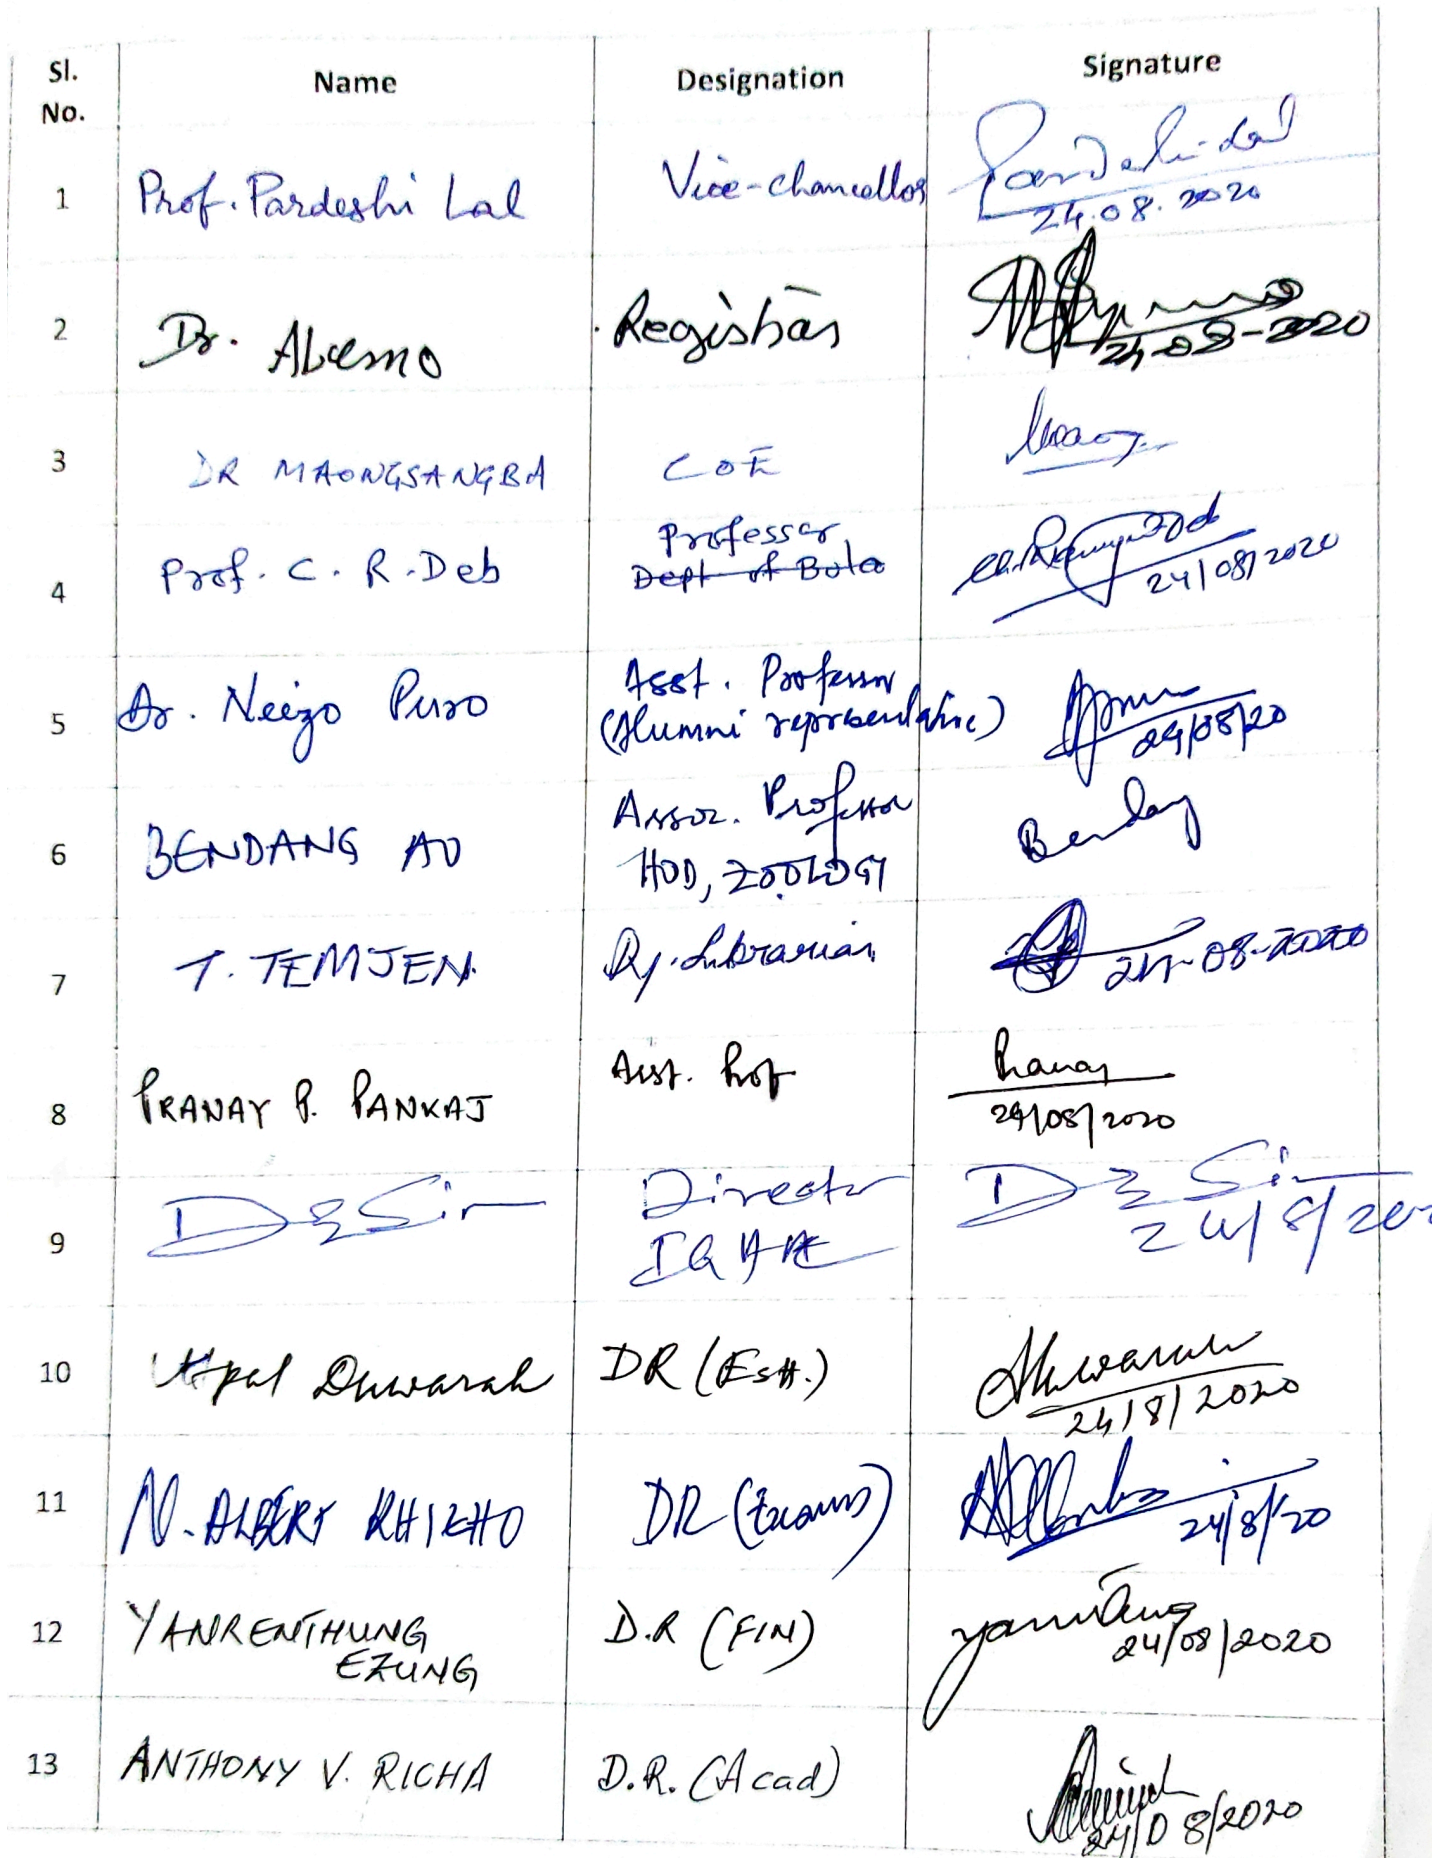 Sl. No. Name Designation Signature
1 Prof. Pardeshi Lal Vice-Chancellor Pardeshi Lal
24.08.2020
2 Dr. Abemo Registrar
24-08-2020
3 DR MAONGSANGBA COE
4 Prof. C. R. Deb Professor
Dept of Bota
24/08/2020
5 Dr. Neizo Puro Asst. Professor
(Alumni representative)
24/08/20
6 BENDANG AO Assoc. Professor Bendang
HOD, ZOOLOGY
7 T. TEMJEN Dy. Librarian 24-08-2020
8 PRANAY P. PANKAJ Asst. Prof Pranay
24/08/2020
9 Director
24/8/20
10 Upal Duwarah DR (Estt.) Duwarah
24/8/2020
11 N. ALBERT KHIKHO DR (Exams)
24/8/20
12 YANRENTHUNG D.R (FIN)
EZUNG 24/08/2020
13 ANTHONY V. RICHA D.R. (Acad)
24/08/2020